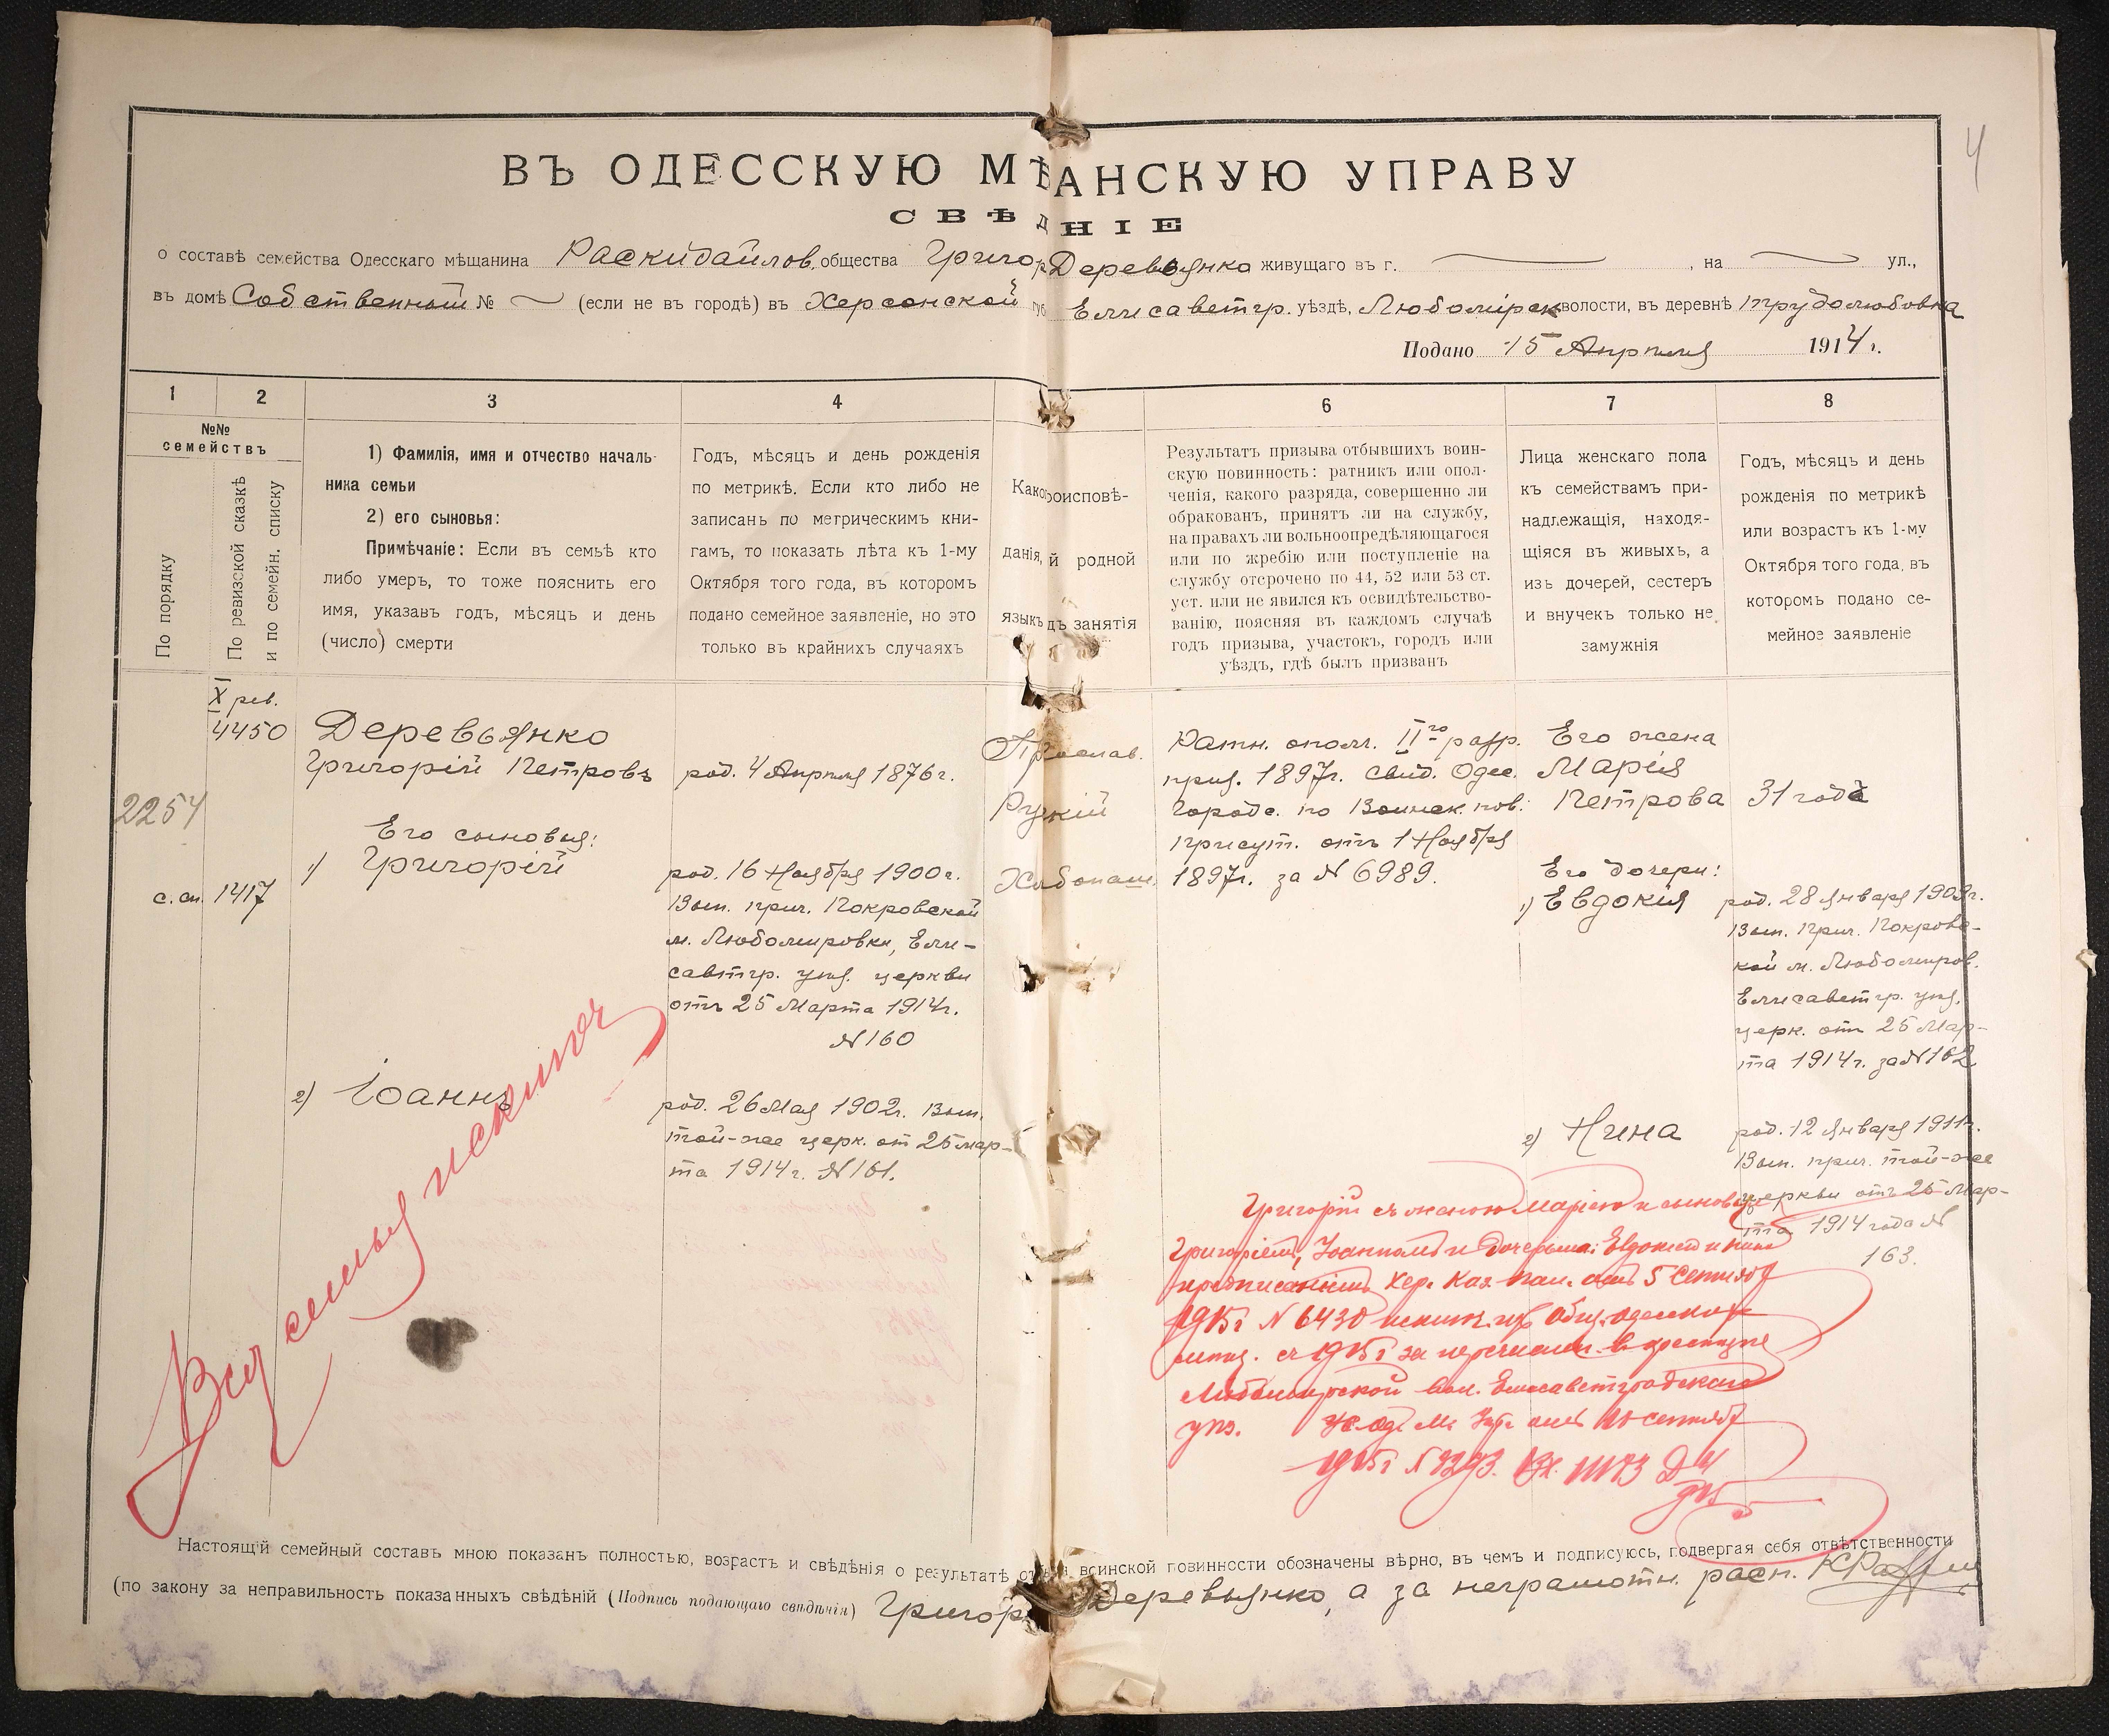 4
ВЪ ОДЕССКУЮ МѢ АНСКУЮ УПРАВУ
СВѢД НІЕ
о составѣ семейства Одесскаго мѣщанина Раскидайлов. общества Григор Деревьянко живущаго въ г. , на ул.,
въ домѣ Собственный № (если не въ городѣ) въ Херсонской губ Елисаветгр. уѣздѣ, Любомірск волости, въ деревнѣ Трудолюбовка
Подано 15 Апрѣля 1914 г.
1 2 3 4 6 7 8
№№ семействъ
По порядку
По ревизской сказкѣ и по семейн. списку
1) Фамилія, имя и отчество началь-
ника семьи
2) его сыновья:
Примѣчаніе: Если въ семьѣ кто
либо умеръ, то тоже пояснить его
имя, указавъ годъ, мѣсяцъ и день
(число) смерти
Годъ, мѣсяцъ и день рожденія
по метрикѣ. Если кто либо не
записанъ по метрическимъ кни-
гамъ, то показать лѣта къ 1-му
Октября того года, въ которомъ
подано семейное заявленіе, но это
только въ крайнихъ случаяхъ
Како роисповѣ-
данія, й родной
языкъ дъ занятія
Результатъ призыва отбывшихъ воин-
скую повинность: ратникъ или опол-
ченія, какого разряда, совершенно ли
обракованъ, принятъ ли на службу,
на правахъ ли вольноопредѣляющагося
или по жребію или поступленіе на
службу отсрочено по 44, 52 или 53 ст.
уст. или не явился къ освидѣтельство-
ванію, поясняя въ каждомъ случаѣ
годъ призыва, участокъ, городъ или
уѣздъ, гдѣ былъ призванъ
Лица женскаго пола
къ семействамъ при-
надлежащія, находя-
щіяся въ живыхъ, а
изъ дочерей, сестеръ
и внучекъ только не
замужнія
Годъ, мѣсяцъ и день
рожденія по метрикѣ
или возрастъ къ 1-му
Октября того года, въ
которомъ подано се-
мейное заявленіе
X рев.
4450
2254
с.сп. 1417
Деревьянко
Григорій Петровъ
Его сыновья:
1) Григорій
2) Іоаннъ
род. 4 Апрѣля 1876 г.
род. 16 Ноября 1900 г.
Вып. прич. Покровской
м. Любомировки, Ели-
саветгр. уѣз. церкви
отъ 25 Марта 1914 г.
№ 160
род. 26 Мая 1902 г. Вып.
той-же церк. от 25 мар-
та 1914 г. № 161.
Православ.
Русский
Хлѣбопаш.
Ратн. ополч. II го разр.
приз. 1897 г. Свид. Одес.
Городс. по Воинск. пов.
присут. отъ 1 Ноября
1897 г. за № 6989.
Его жена
Марія
Петрова
Его дочери:
1) Евдокія
2) Нина
31 года
род. 28 Января 1909 г.
Вып. прич. Покровс-
кой м. Любомиров.
Елисаветгр. уѣз.
церк. от 25 Мар-
та 1914 г. за № 162
род. 12 Января 1911 г.
Вып. прич. той-же
церкви отъ 25 Мар-
та 1914 года №
163.
Вся семья исключен
Григорій съ женою Маріею и сыновьями
Григоріемъ, Іоанномъ и дочерьми: Евдокіей и Нина
предписаніемъ Хер. Каз. пал. отъ 5 Сентября
1915 г № 6430 исключ. изъ общ. одесских
мѣщ. съ 1915 г за перечислен. в крестьяне
Любомирской вол. Елисаветградскаго
уѣз.
1915 г
Настоящій семейный составъ мною показанъ полностью, возрастъ и свѣдѣнія о результатѣ от воинской повинности обозначены вѣрно, въ чемъ и подписуюсь, подвергая себя отвѣтственности
(по закону за неправильность показанныхъ свѣдѣній (Подпись подающаго свѣдѣнія) Григор Деревьянко, а за неграмотн. расп.